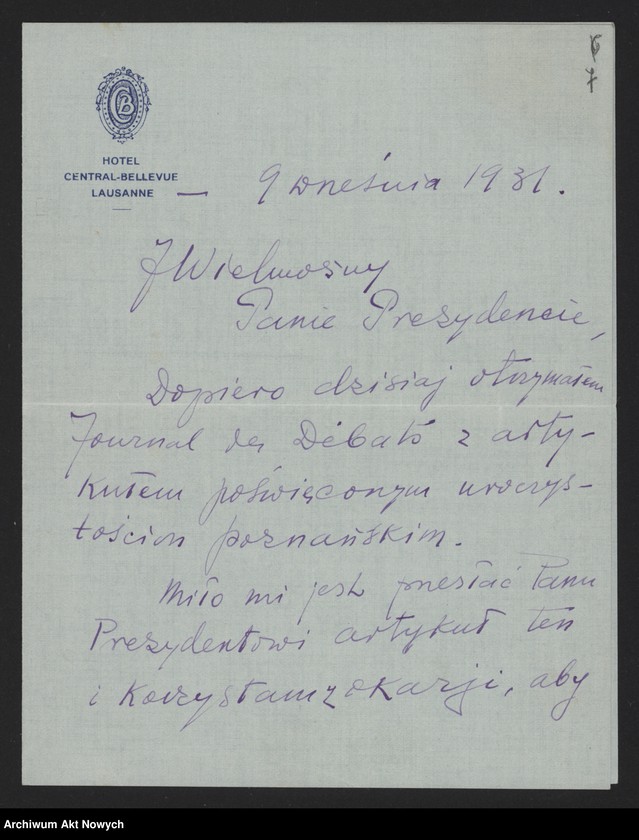 6
7
CB
HOTEL
CENTRAL-BELLEVUE
LAUSANNE — 9 września 1931.
JWielmożny
Panie Prezydencie,
Dopiero dzisiaj otrzymałem
Journal des Débats z arty-
kułem poświęconym uroczys-
tościom poznańskim.
Miło mi jest przesłać Panu
Prezydentowi artykuł ten
i korzystam z okazji, aby
Archiwum Akt Nowych